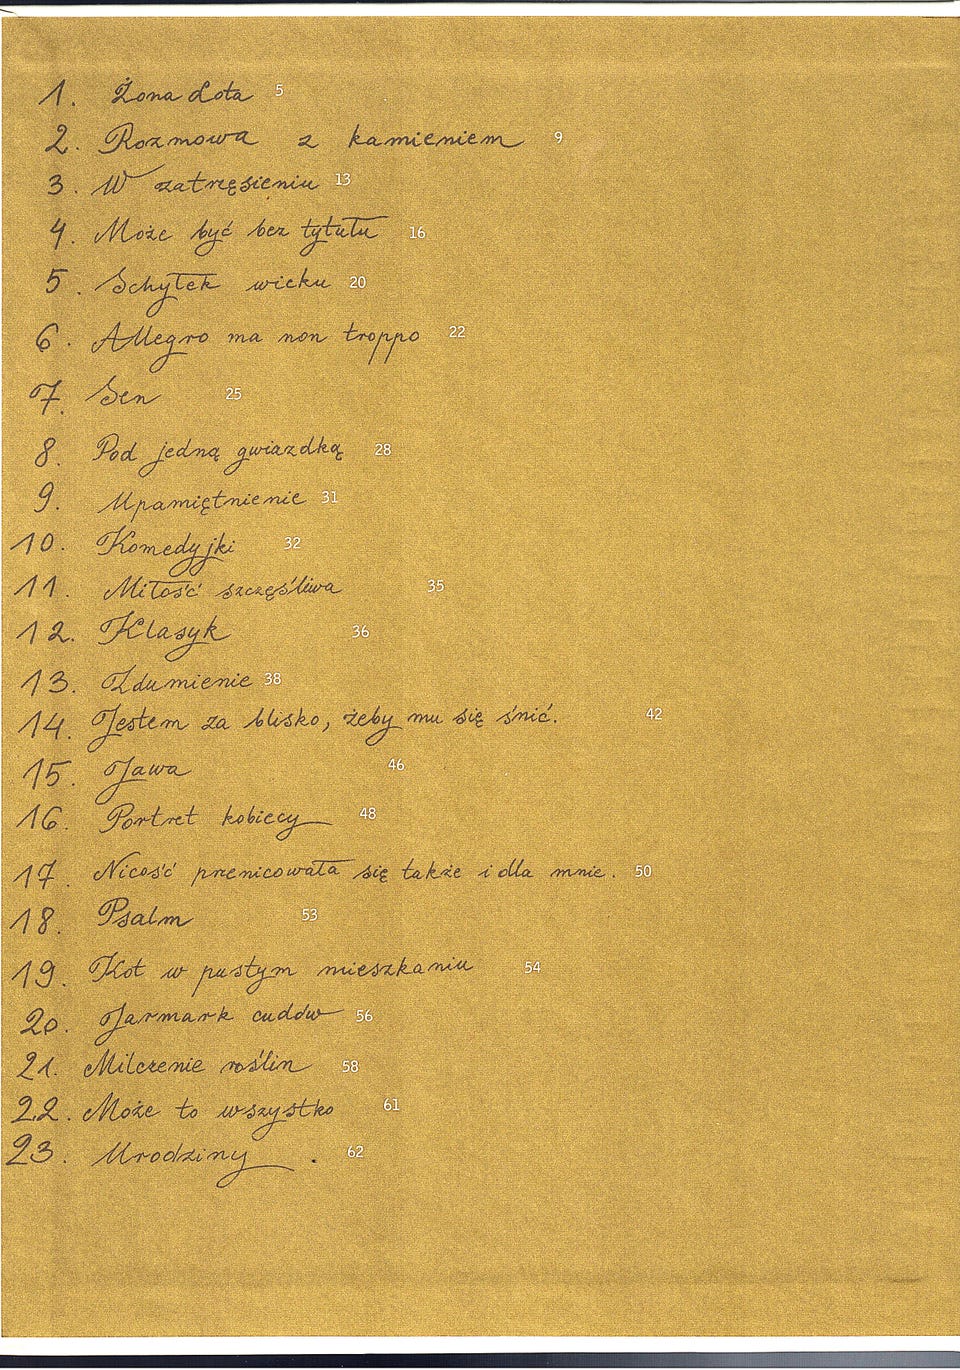 1. Żona Lota 5
2. Rozmowa z kamieniem 9
3. W zatrzęsieniu 13
4. Może być bez tytułu 16
5. Schyłek wieku 20
6. Allegro ma non troppo 22
7. Sen 25
8. Pod jedną gwiazdką 28
9. Upamiętnienie 31
10. Komedyjki 32
11. Miłość szczęśliwa 35
12. Klasyk 36
13. Zdumienie 38
14. Jestem za blisko, żeby mu się śnić. 42
15. Jawa 46
16. Portret kobiecy 48
17. Nicość przenicowała się także i dla mnie. 50
18. Psalm 53
19. Kot w pustym mieszkaniu 54
20. Jarmark cudów 56
21. Milczenie roślin 58
22. Może to wszystko 61
23. Urodziny . 62